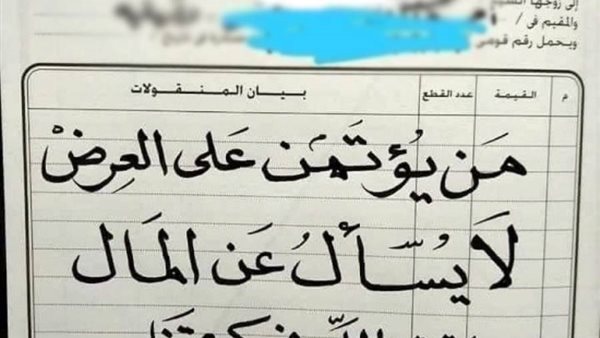 إلى زوجها السيد
والمقيم فى /
ويحمل رقم قومى
م القيمة عدد القطع بيان المنقولات
مَن يُؤتَمَن عَلى العِرضْ
لَا يُسْأَلُ عَن المَال